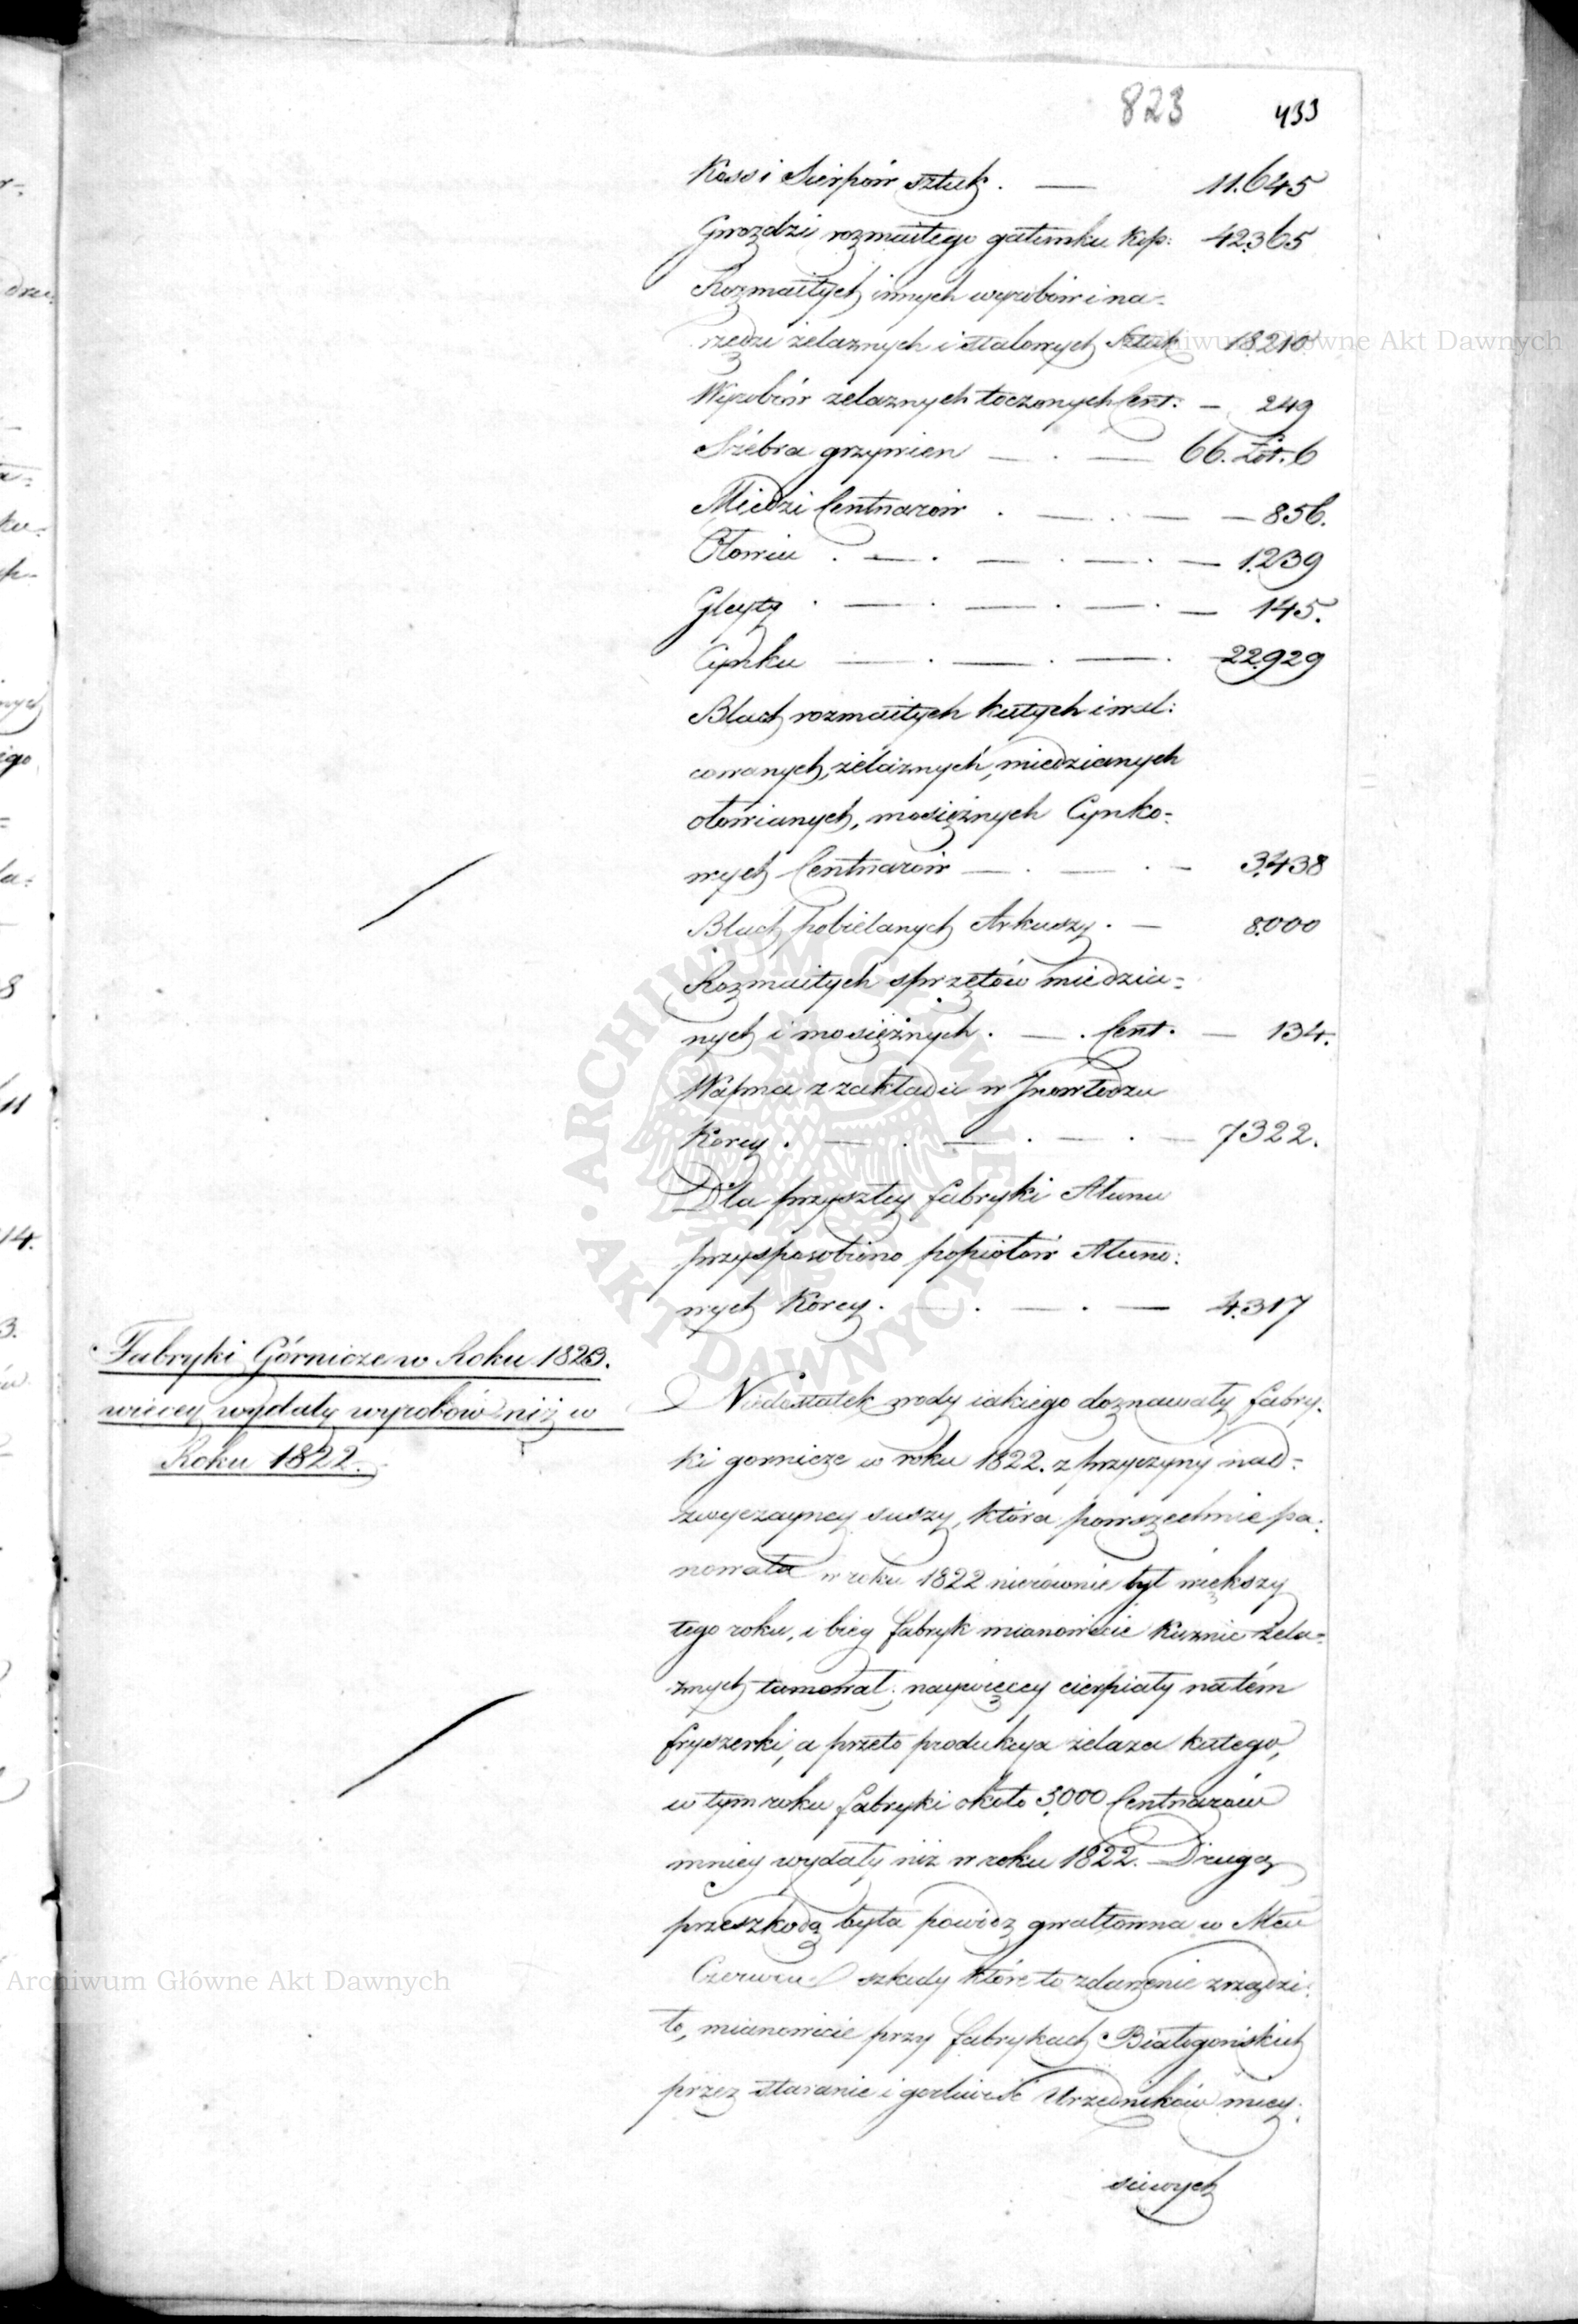 823 433
Koss i Sierpów sztuk. — 11.645
Gwozdzi rozmaitego gatunku Kop: 42365
Rozmaitych innych wyrobów i na=
rzędzi żelaznych i stalowych Sztuk 18.210
Wyrobów żelaznych toczonych Cent: — 249
Srébra grzywien — . — 66. Łót. 6
Miedzi Centnarów . — . — — 856.
Ołowiu . — . — . — . — 1.239
Gleyty . — . — . — . — 145.
Cynku — . — . — . 22.929
Blach rozmaitych kutych i wal:
cowanych, żelaznych, miedzianych
ołowianych, mosiężnych Cynko=
wych Centnarów — . — . — 3.438
Blach pobielanych Arkuszy . — 8.000
Rozmaitych sprzętów miedzia=
nych i mosiężnych . — . Cent. — 134.
Wapna z zakładu w Inowłodzu
Korcy . — . — . — . — 7322.
Dla przyszłey fabryki Ałunu
przysposobiono popiołów Ałuno:
wych Korcy . — . — . — 4.317
Fabryki Górnicze w Roku 1823.
więcey wydały wyrobów niż w
Roku 1822.
Niedostatek wody iakiego doznawały fabry:
ki gornicze w roku 1822. z przyczyny nad=
zwyczayney suszy, która powszechnie pa:
nowała w roku 1822 nierównie był większy
tego roku, i bieg fabryk mianowicie Kuznic żela=
znych tamował; naywięcey cierpiały na tém
fryszerki, a przeto produkcya żelaza kutego,
w tym roku fabryki około 3.000 Centnarów
mniey wydały niż w roku 1822. Drugą
przeszkodą była powódz gwałtowna w Mcu
Czerwcu szkody które to zdarzenie zrządzi:
ło, mianowicie przy fabrykach Białogońskich
przez staranie i gorliwość Urzędników miey:
scowych
Archiwum Główne Akt Dawnych
Archiwum Główne Akt Dawnych
ARCHIWUM GŁÓWNE AKT DAWNYCH